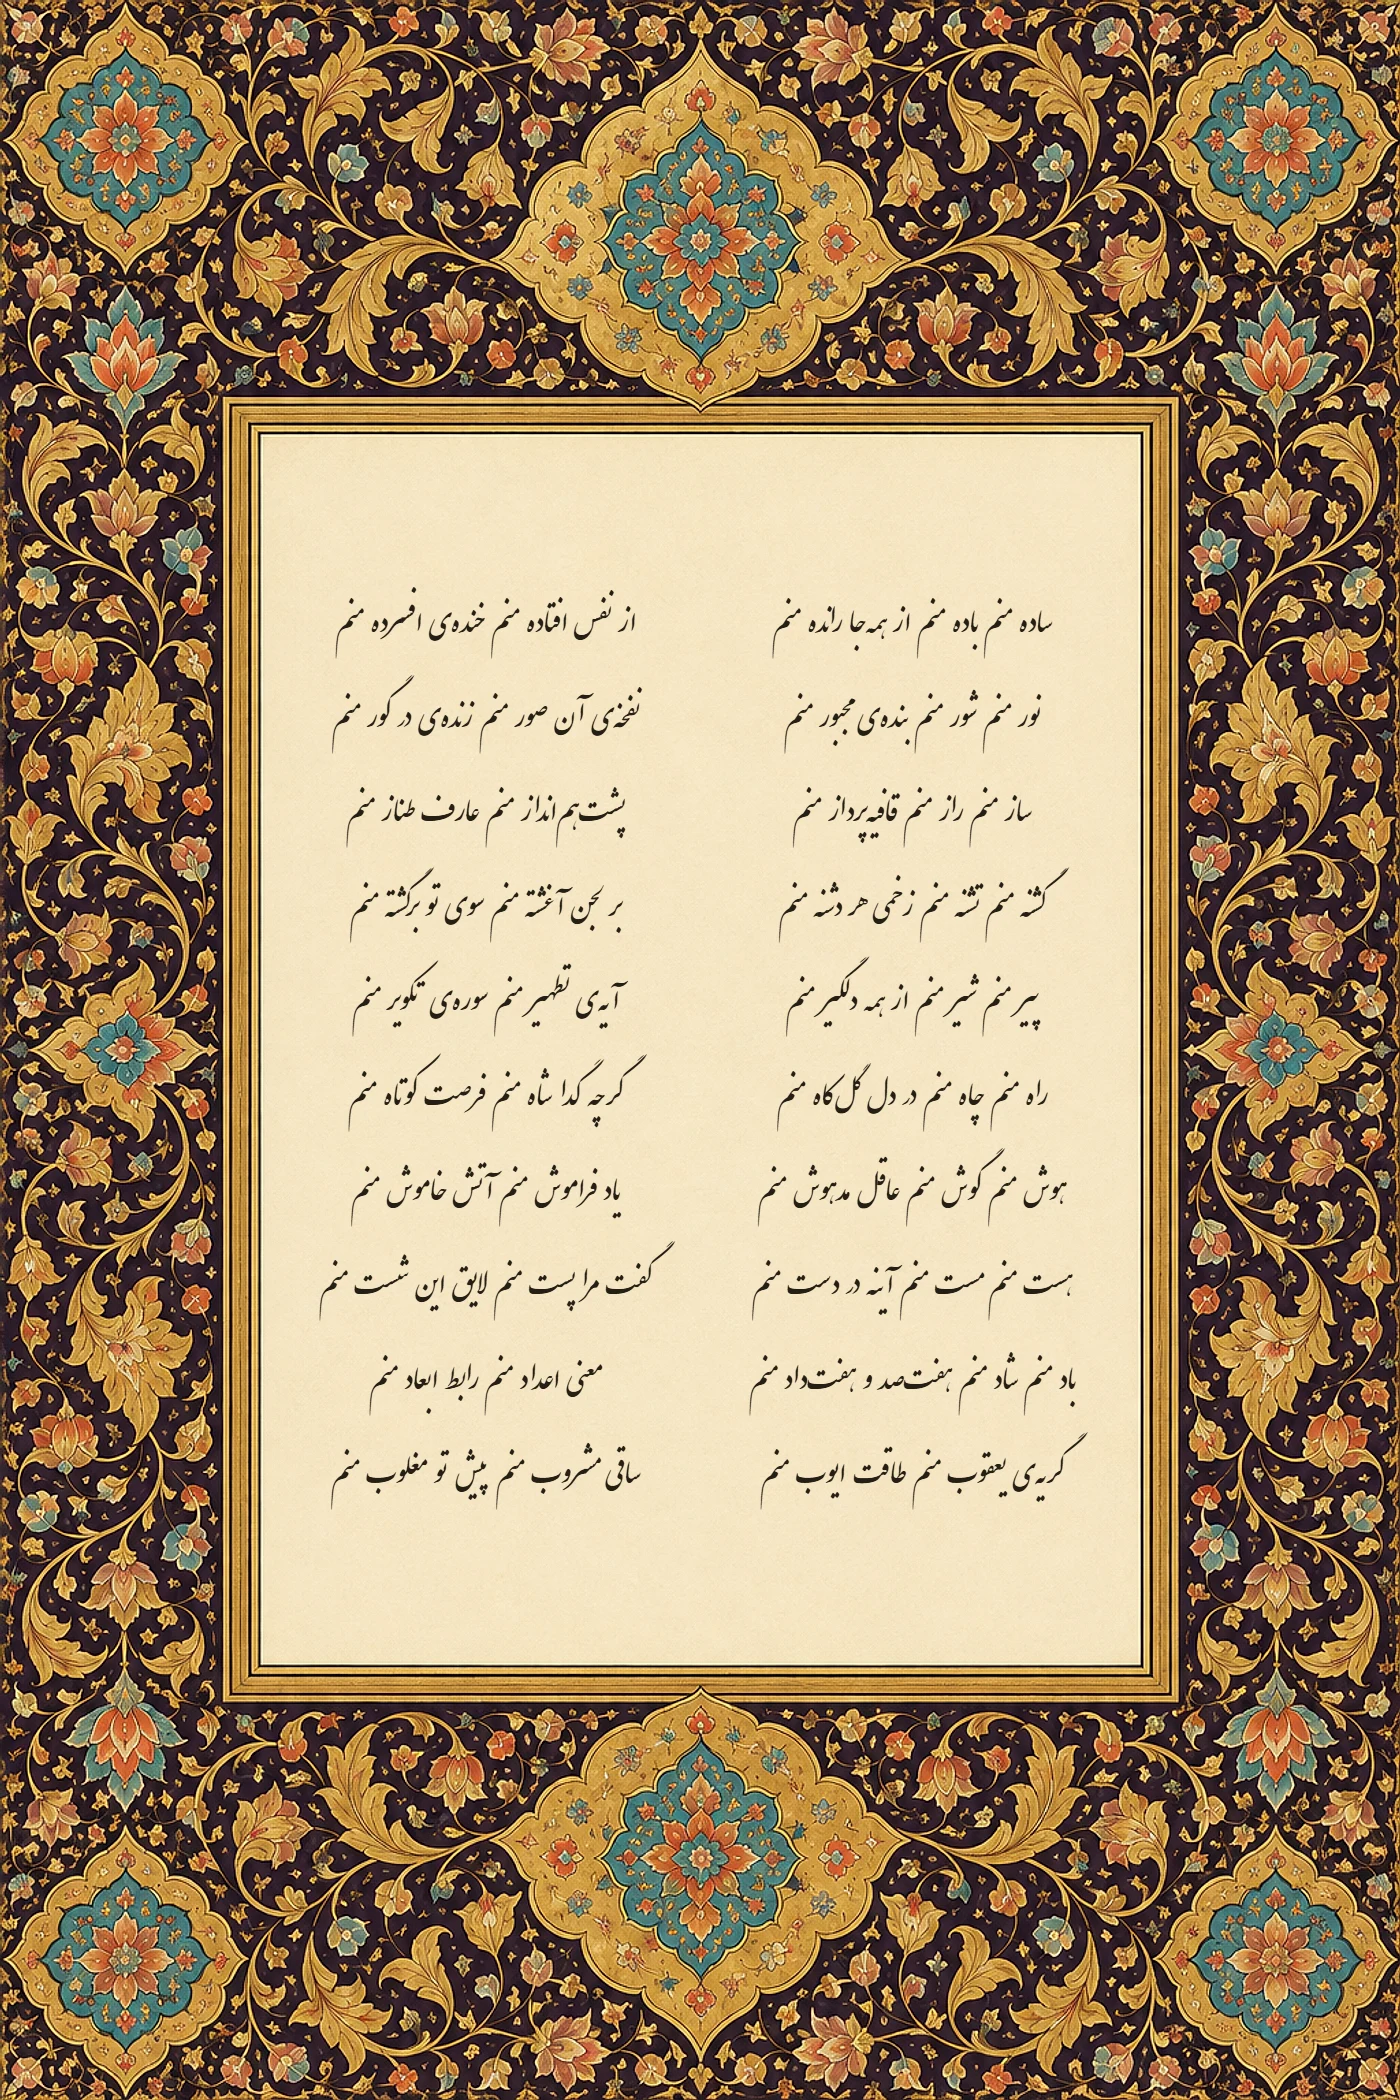 ساده منم باده منم از همه‌جا رانده منم
از نفس افتاده منم خنده‌ی افسرده منم
نور منم شور منم بنده‌ی مجبور منم
نفخه‌ی آن صور منم زنده‌ی در گور منم
ساز منم راز منم قافیه‌پرداز منم
پشت‌هم‌انداز منم عارف طناز منم
گشنه منم تشنه منم زخمی هر دشنه منم
بر لجن آغشته منم سوی تو برگشته منم
پیر منم شیر منم از همه دلگیر منم
آیه‌ی تطهیر منم سوره‌ی تکویر منم
راه منم چاه منم در دل گل‌کاه منم
گرچه گدا شاه منم فرصت کوتاه منم
هوش منم گوش منم عاقل مدهوش منم
یاد فراموش منم آتش خاموش منم
هست منم مست منم آینه در دست منم
گفت مرا پست منم لایق این شست منم
باد منم شاد منم هفت‌صد و هفت‌داد منم
معنی اعداد منم رابط ابعاد منم
گریه‌ی یعقوب منم طاقت ایوب منم
ساقی مشروب منم پیش تو مغلوب منم